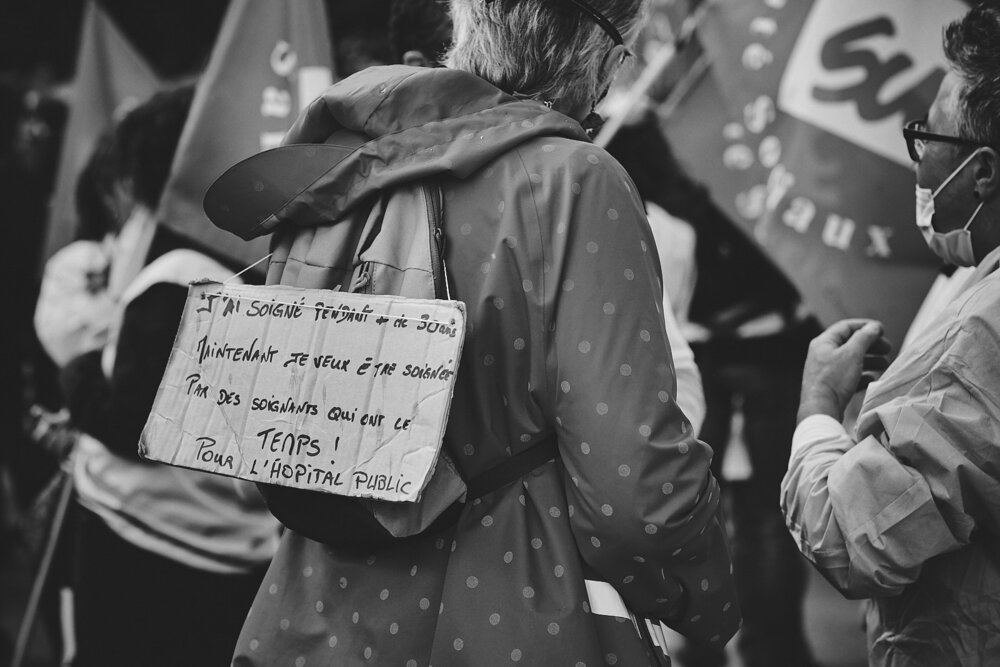 J'AI SOIGNÉ PENDANT + de 30 ans
MAINTENANT JE VEUX ÊTRE SOIGNÉE
PAR DES SOIGNANTS QUI ONT LE
TEMPS !
POUR L'HOPITAL PUBLIC